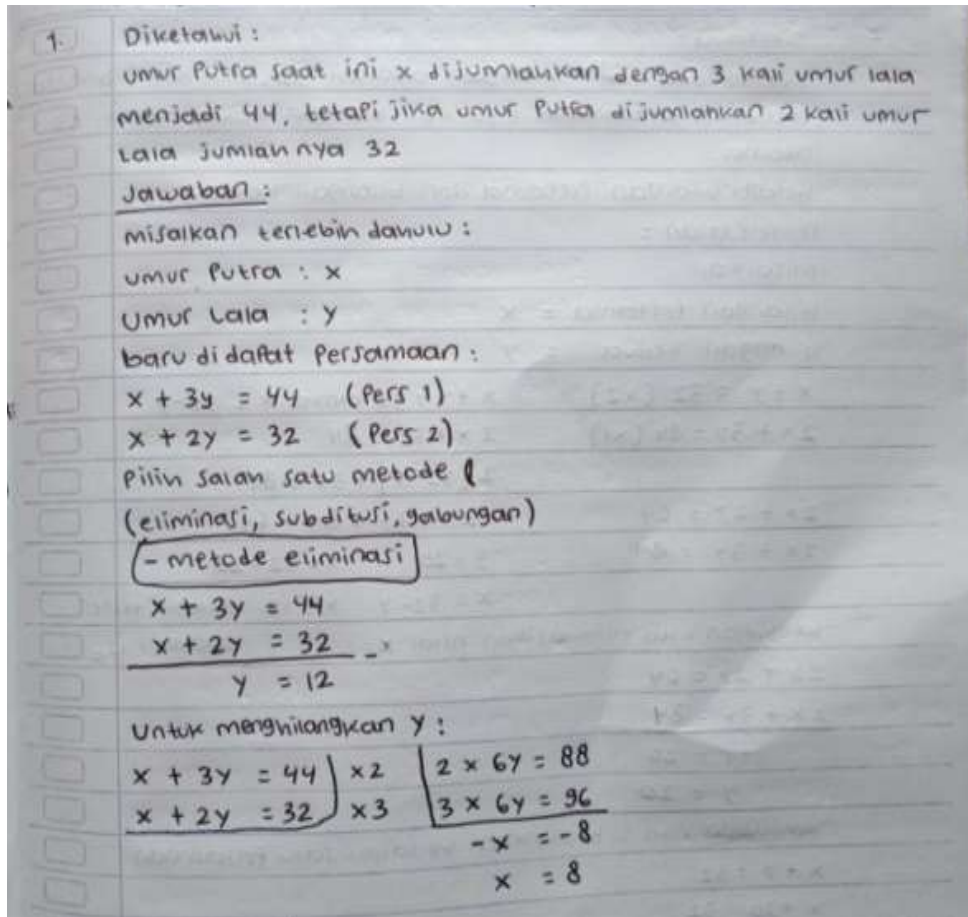 1. Diketahui :
umur Putra saat ini x dijumlahkan dengan 3 kali umur lala
menjadi 44, tetapi jika umur Putra dijumlahkan 2 kali umur
Lala jumlahnya 32
Jawaban :
misalkan terlebih dahulu :
umur Putra : x
Umur Lala : y
baru di dapat Persamaan :
x + 3y = 44 (Pers 1)
x + 2y = 32 (Pers 2)
Pilih salah satu metode (
(eliminasi, subditusi, gabungan)
- metode eliminasi
x + 3y = 44
x + 2y = 32 -
y = 12
Untuk menghilangkan y :
x + 3y = 44 | x2 | 2 x 6y = 88
x + 2y = 32 | x3 | 3 x 6y = 96
-x = -8
x = 8